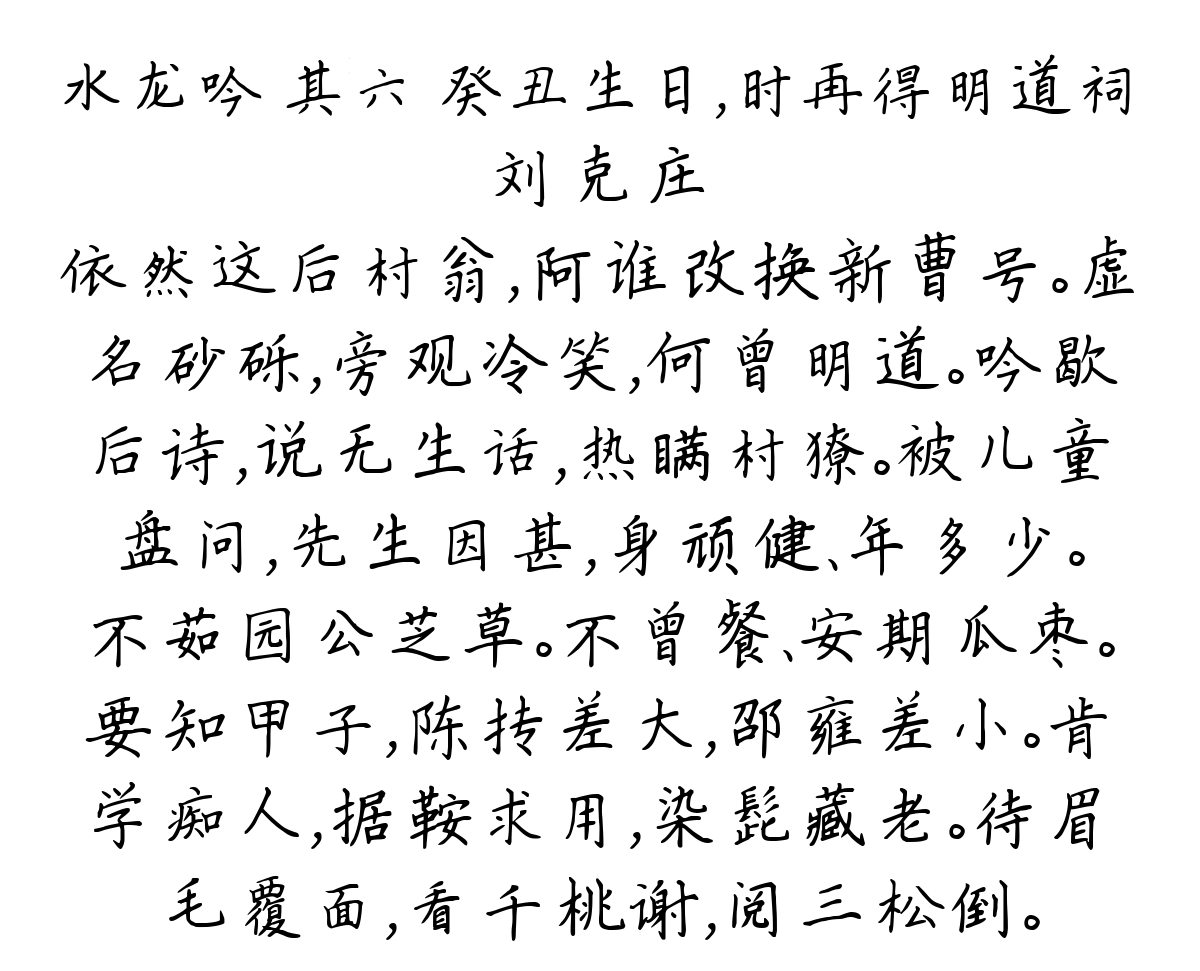 水龙吟 其六 癸丑生日,时再得明道祠
刘克庄
依然这后村翁,阿谁改换新曹号。虚
名砂砾,旁观冷笑,何曾明道。吟歇
后诗,说无生话,热瞒村獠。被儿童
盘问,先生因甚,身顽健、年多少。
不茹园公芝草。不曾餐、安期瓜枣。
要知甲子,陈抟差大,邵雍差小。肯
学痴人,据鞍求用,染髭藏老。待眉
毛覆面,看千桃谢,阅三松倒。